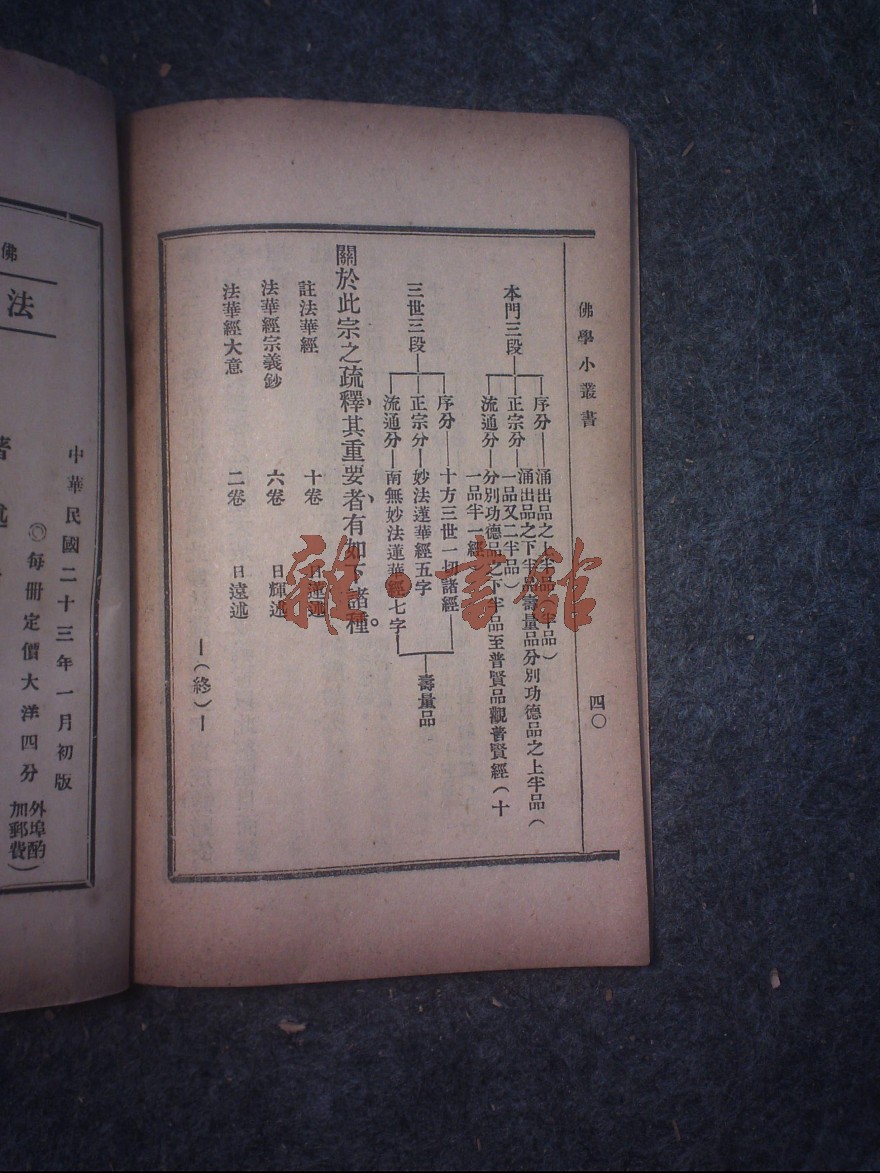 佛學小叢書
四〇
本門三段
序分
涌出品之上半品（半品）
正宗分
涌出品之下半品壽量品分別功德品之上半品（
一品又二半品）
流通分
分別功德品之下半品至普賢品觀普賢經（十
一品半一經）
三世三段
序分
十方三世一切諸經
正宗分
妙法蓮華經五字
流通分
南無妙法蓮華經七字
壽量品
關於此宗之疏釋、其重要者、有如下諸種。
註法華經 十卷 日蓮述
法華經宗義鈔 六卷 日輝述
法華經大意 二卷 日遠述
—（終）—
雜·書館
中華民國二十三年一月初版
◎每冊定價大洋四分
外埠酌
加郵費）
佛
法